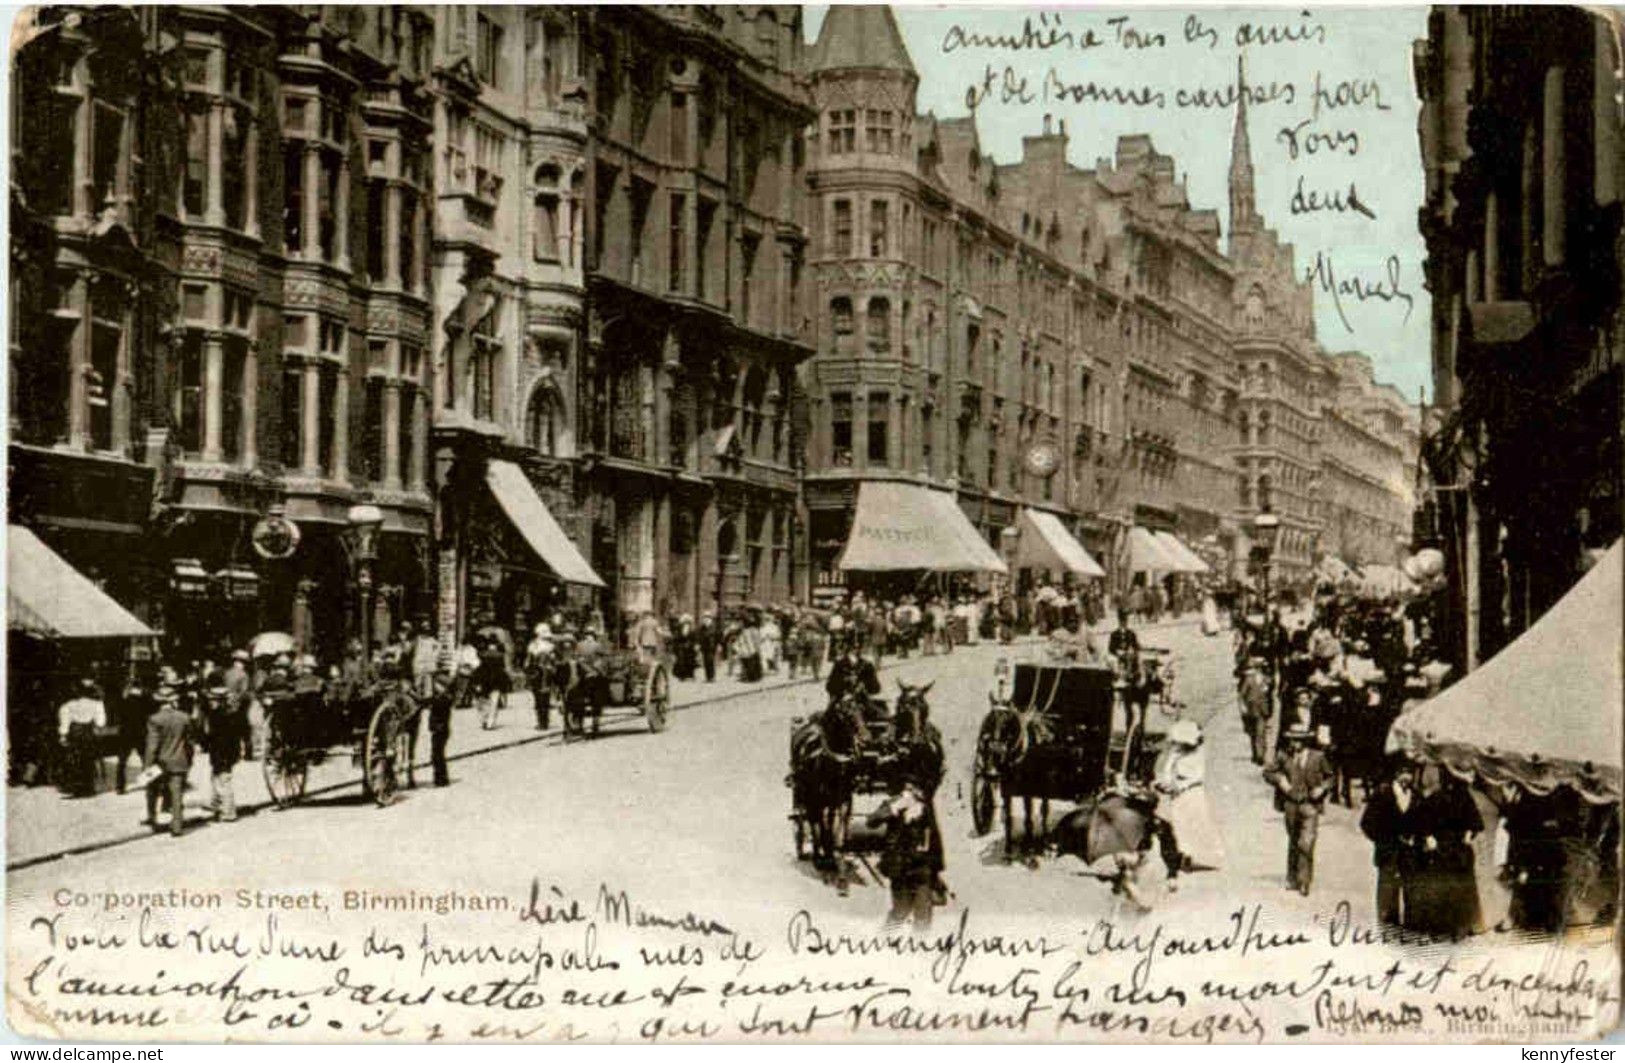 amitiés a Tous les amis
et de Bonnes caresses pour
Vous
deux
Marcel
Corporation Street, Birmingham.
chère Maman
Voici la vue d'une des principales rues de Birmingham. Aujourd'hui
l'animation dans cette rue est énorme - toutes les rues montent et descendent
comme celle ci - il y en a qui sont vraiment passagers - Reponds moi
Birmingham.
delcampe.net
kennyfester